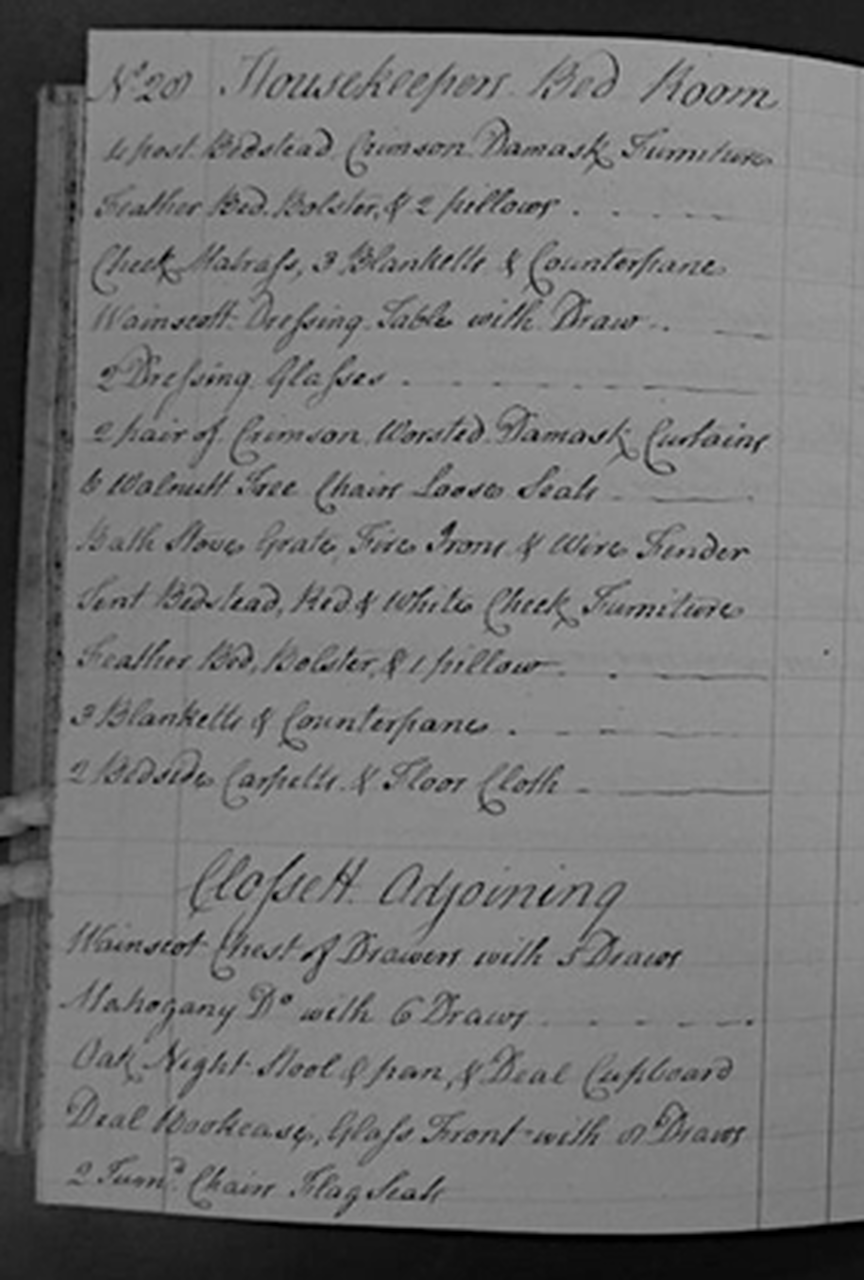 No. 28 Housekeepers Bed Room
4 post Bedstead Crimson Damask Furniture
Feather Bed, Bolster, & 2 pillows
Check Matrass, 3 Blanketts & Counterpane
Wainscott Dressing Table with Draw
2 Dressing Glasses
2 pair of Crimson Worsted Damask Curtains
6 Walnutt Tree Chairs Loose Seats
Bath Stove Grate, Fire Irons & Wire Fender
Tent Bedstead, Red & White Check Furniture
Feather Bed, Bolster, & 1 pillow
3 Blanketts & Counterpane
2 Bedside Carpetts & Floor Cloth
Clossett Adjoining
Wainscot Chest of Drawers with 5 Draws
Mahogany Do with 6 Draws
Oak Night Stool & pan, & Deal Cupboard
Deal Bookcase, Glass Front with 8 Draws
2 Turnd Chairs Flag Seats